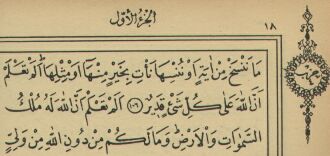 الجزء الأول
١٨
مَا نَنْسَخْ مِنْ اٰيَةٍ اَوْ نُنْسِهَا نَأْتِ بِخَيْرٍ مِنْهَٓا اَوْ مِثْلِهَا اَلَمْ تَعْلَمْ
اَنَّ اللّٰهَ عَلٰى كُلِّ شَيْءٍ قَدِيرٌ ﴿١٠٦﴾ اَلَمْ تَعْلَمْ اَنَّ اللّٰهَ لَهُ مُلْكُ
السَّمٰوَاتِ وَالْاَرْضِ وَمَا لَكُمْ مِنْ دُونِ اللّٰهِ مِنْ وَلِيٍّ